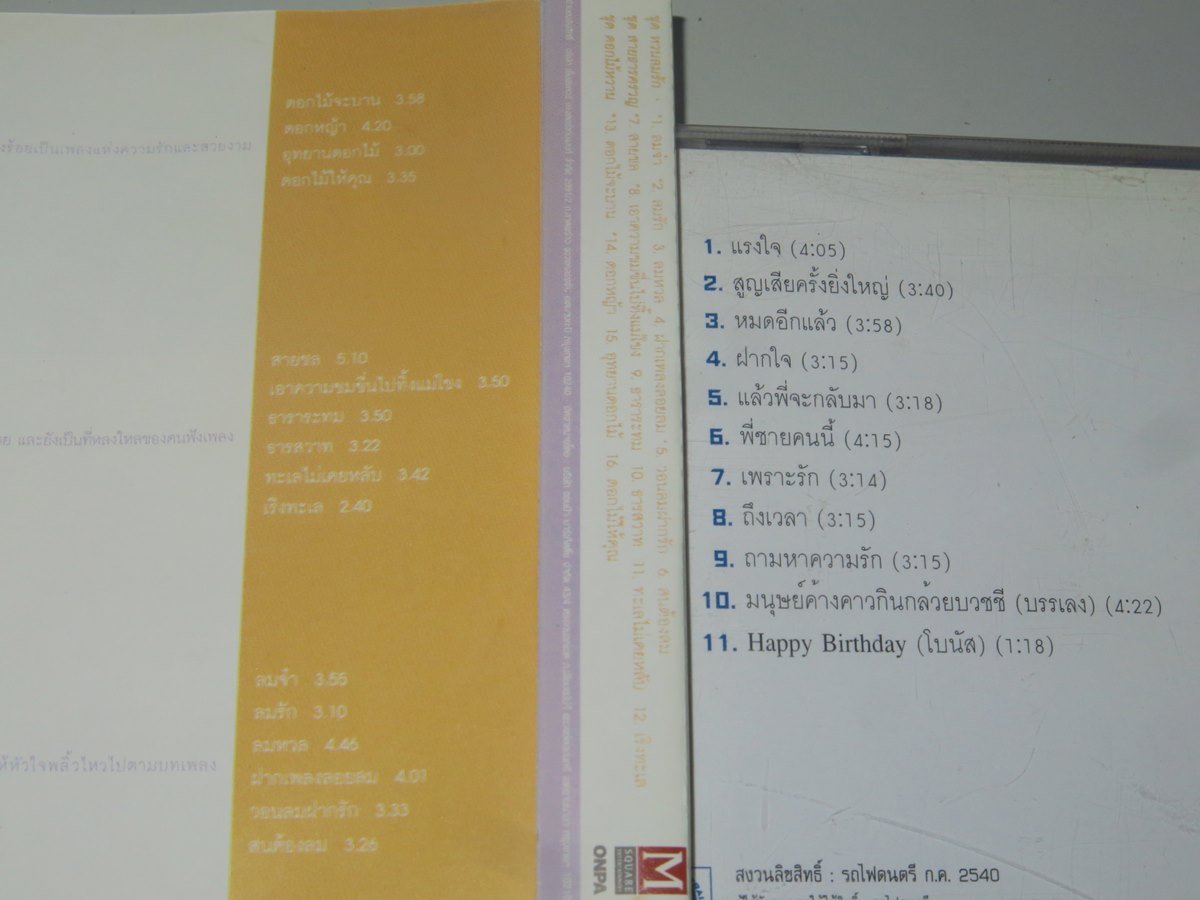 งร้อยเป็นเพลงแห่งความรักและสวยงาม
ดอกไม้จะบาน 3.58
ดอกหญ้า 4.20
อุทยานดอกไม้ 3.00
ดอกไม้ให้คุณ 3.35
ย และยังเป็นที่หลงใหลของคนฟังเพลง
สายชล 5.10
เอาความขมขื่นไปทิ้งแม่โขง 3.50
ธาราระทม 3.50
ธารสวาท 3.22
ทะเลไม่เคยหลับ 3.42
เริงทะเล 2.40
ห้หัวใจพลิ้วไหวไปตามบทเพลง
ลมจ๋า 3.55
ลมรัก 3.10
ลมหวล 4.46
ฝากเพลงลอยลม 4.01
วอนลมฝากรัก 3.33
สนต้องลม 3.26
1. ลมจ๋า *2. ลมรัก 3. ลมหวล 4. ฝากเพลงลอยลม *5. วอนลมฝากรัก 6. สนต้องลม
*7. สายชล *8. เอาความขมขื่นไปทิ้งแม่โขง 9. ธาราระทม 10. ธารสวาท 11. ทะเลไม่เคยหลับ 12. เริงทะเล
*13. ดอกไม้จะบาน *14. ดอกหญ้า 15. อุทยานดอกไม้ 16. ดอกไม้ให้คุณ
M
SQUARE
ONPA
1. แรงใจ (4:05)
2. สูญเสียครั้งยิ่งใหญ่ (3:40)
3. หมดอีกแล้ว (3:58)
4. ฝากใจ (3:15)
5. แล้วพี่จะกลับมา (3:18)
6. พี่ชายคนนี้ (4:15)
7. เพราะรัก (3:14)
8. ถึงเวลา (3:15)
9. ถามหาความรัก (3:15)
10. มนุษย์ค้างคาวกินกล้วยบวชชี (บรรเลง) (4:22)
11. Happy Birthday (โบนัส) (1:18)
สงวนลิขสิทธิ์ : รถไฟดนตรี ก.ค. 2540